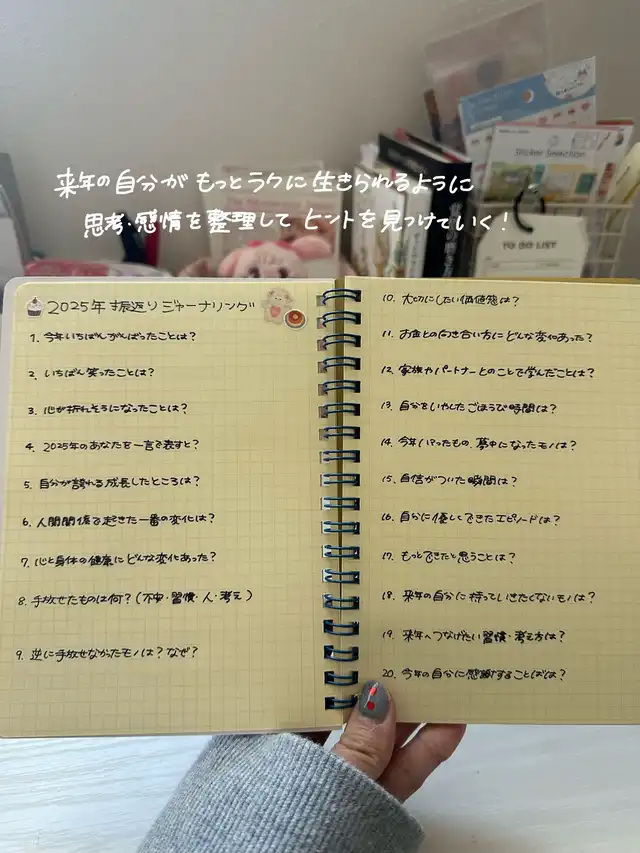 来年の自分が もっとラクに 生きられるように
思考・感情を整理して ヒントを見つけていく！
Sticker Selection
TO DO LIST
2025年 振返りジャーナリング
1. 今年いちばんがんばったことは？
2. いちばん笑ったことは？
3. 心が折れそうになったことは？
4. 2025年のあなたを一言で表すと？
5. 自分が誇れる成長したところは？
6. 人間関係で起きた一番の変化は？
7. 心と身体の健康にどんな変化あった？
8. 手放せたものは何？（不安・習慣・人・考え）
9. 逆に手放せなかったモノは？なぜ？
10. 大切にしたい価値感は？
11. お金との向き合い方にどんな変化あった？
12. 家族やパートナーとのことで学んだことは？
13. 自分をいやしたごほうび時間は？
14. 今年ハマったもの、夢中になったモノは？
15. 自信がついた瞬間は？
16. 自分に優しくできたエピソードは？
17. もっとできたと思うことは？
18. 来年の自分に持っていきたくないモノは？
19. 来年へつなげたい習慣・考え方は？
20. 今年の自分に感謝することばは？